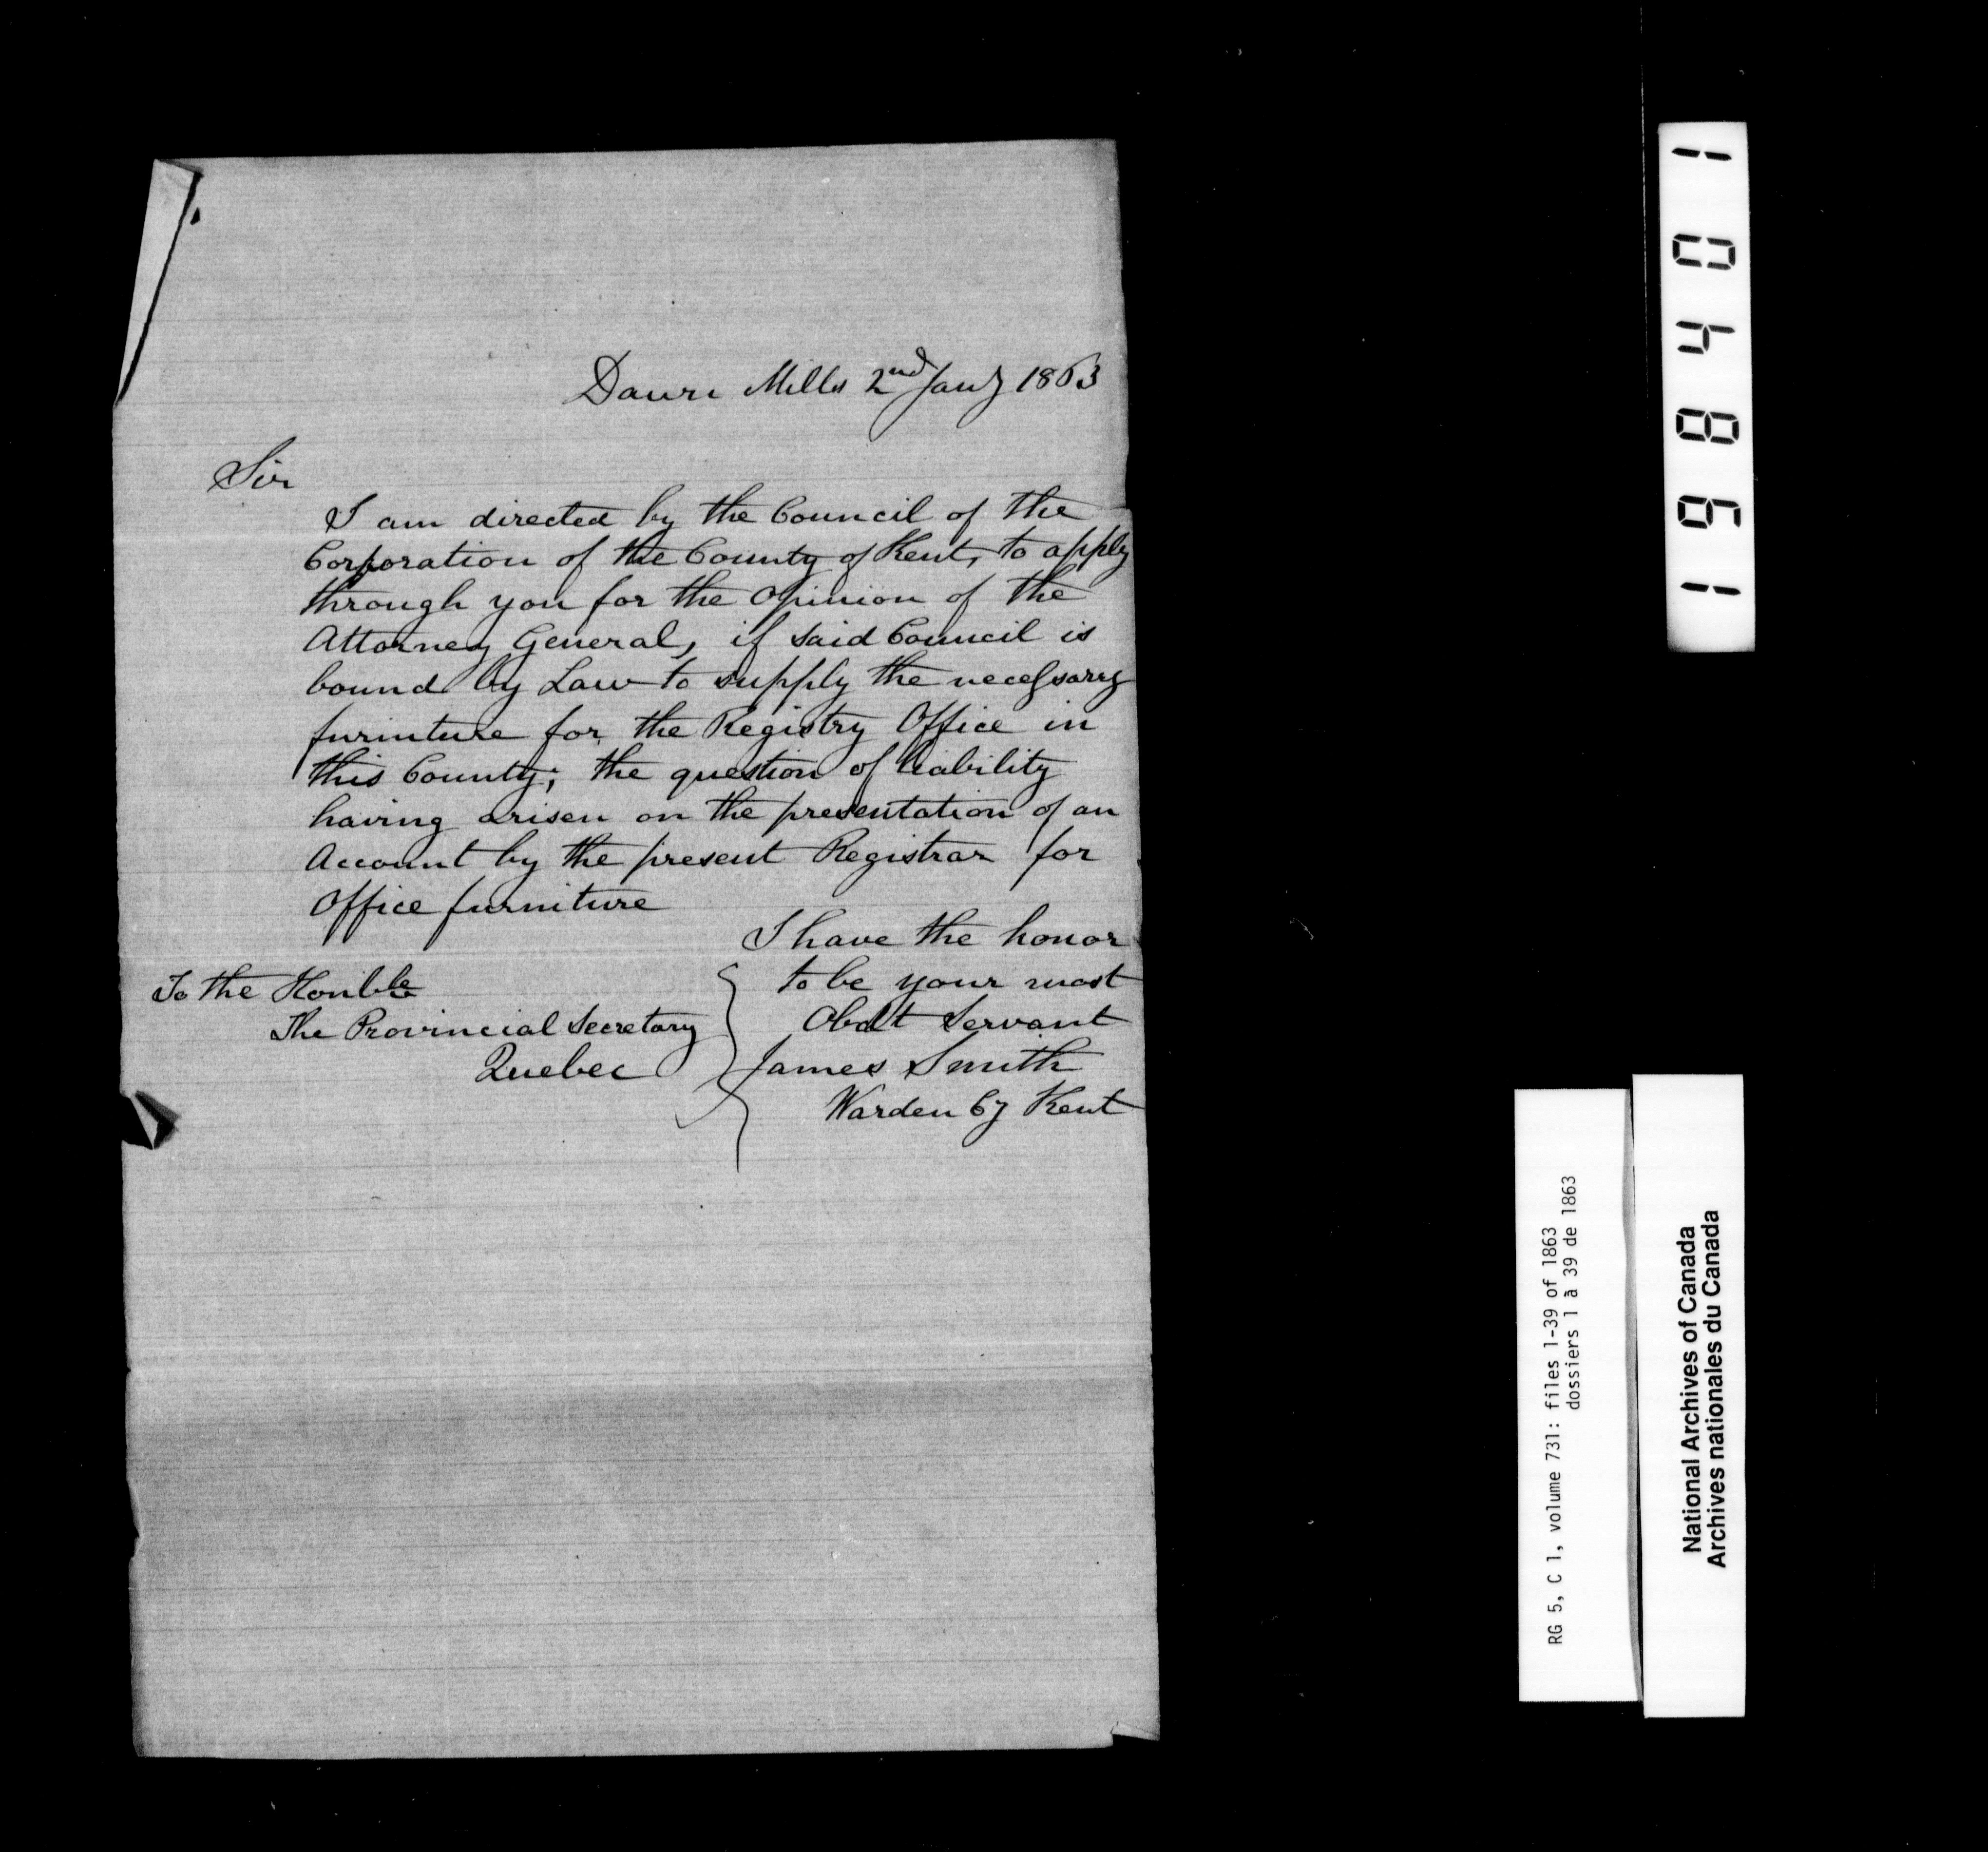 Dawn Mills 2nd Jany 1863
Sir
I am directed by the Council of the
Corporation of the County of Kent, to apply
through you for the Opinion of the
Attorney General, if said Council is
bound by Law to supply the necessary
furniture for the Registry Office in
this County; the question of liability
having arisen on the presentation of an
Account by the present Registrar for
Office furniture
I have the honor
to be your most
Obdt Servant
James Smith
Warden Cy Kent
To the Honble
The Provincial Secretary
Quebec
198401
RG 5, C 1, volume 731: files 1-39 of 1863
dossiers 1 à 39 de 1863
National Archives of Canada
Archives nationales du Canada